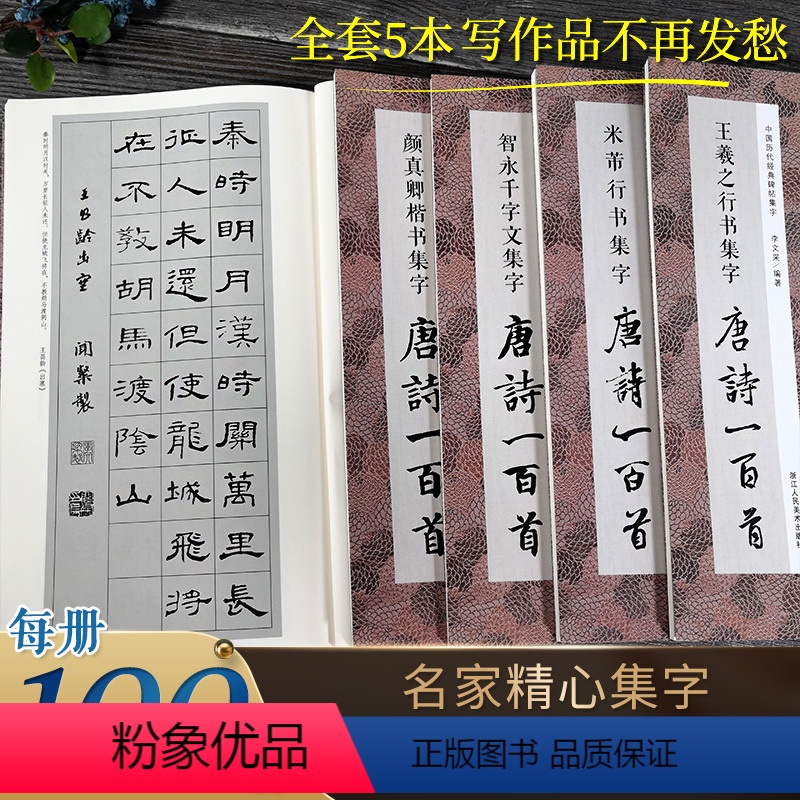 全套5本 写作品不再发愁
秦時明月漢時關萬里長
征人未還但使龍城飛將
在不教胡馬渡陰山
王昌齡出塞
秦时明月汉时关，万里长征人未还。但使龙城飞将在，不教胡马渡阴山。
王昌龄《出塞》
颜真卿楷书集字
唐詩一百首
智永千字文集字
唐詩一百首
米芾行书集字
唐詩一百首
中国历代经典碑帖集字
李文采／编著
王羲之行书集字
唐詩一百首
浙江人民美术出版社
每册
100
名家精心集字
粉象优品
正版图书 品质保证